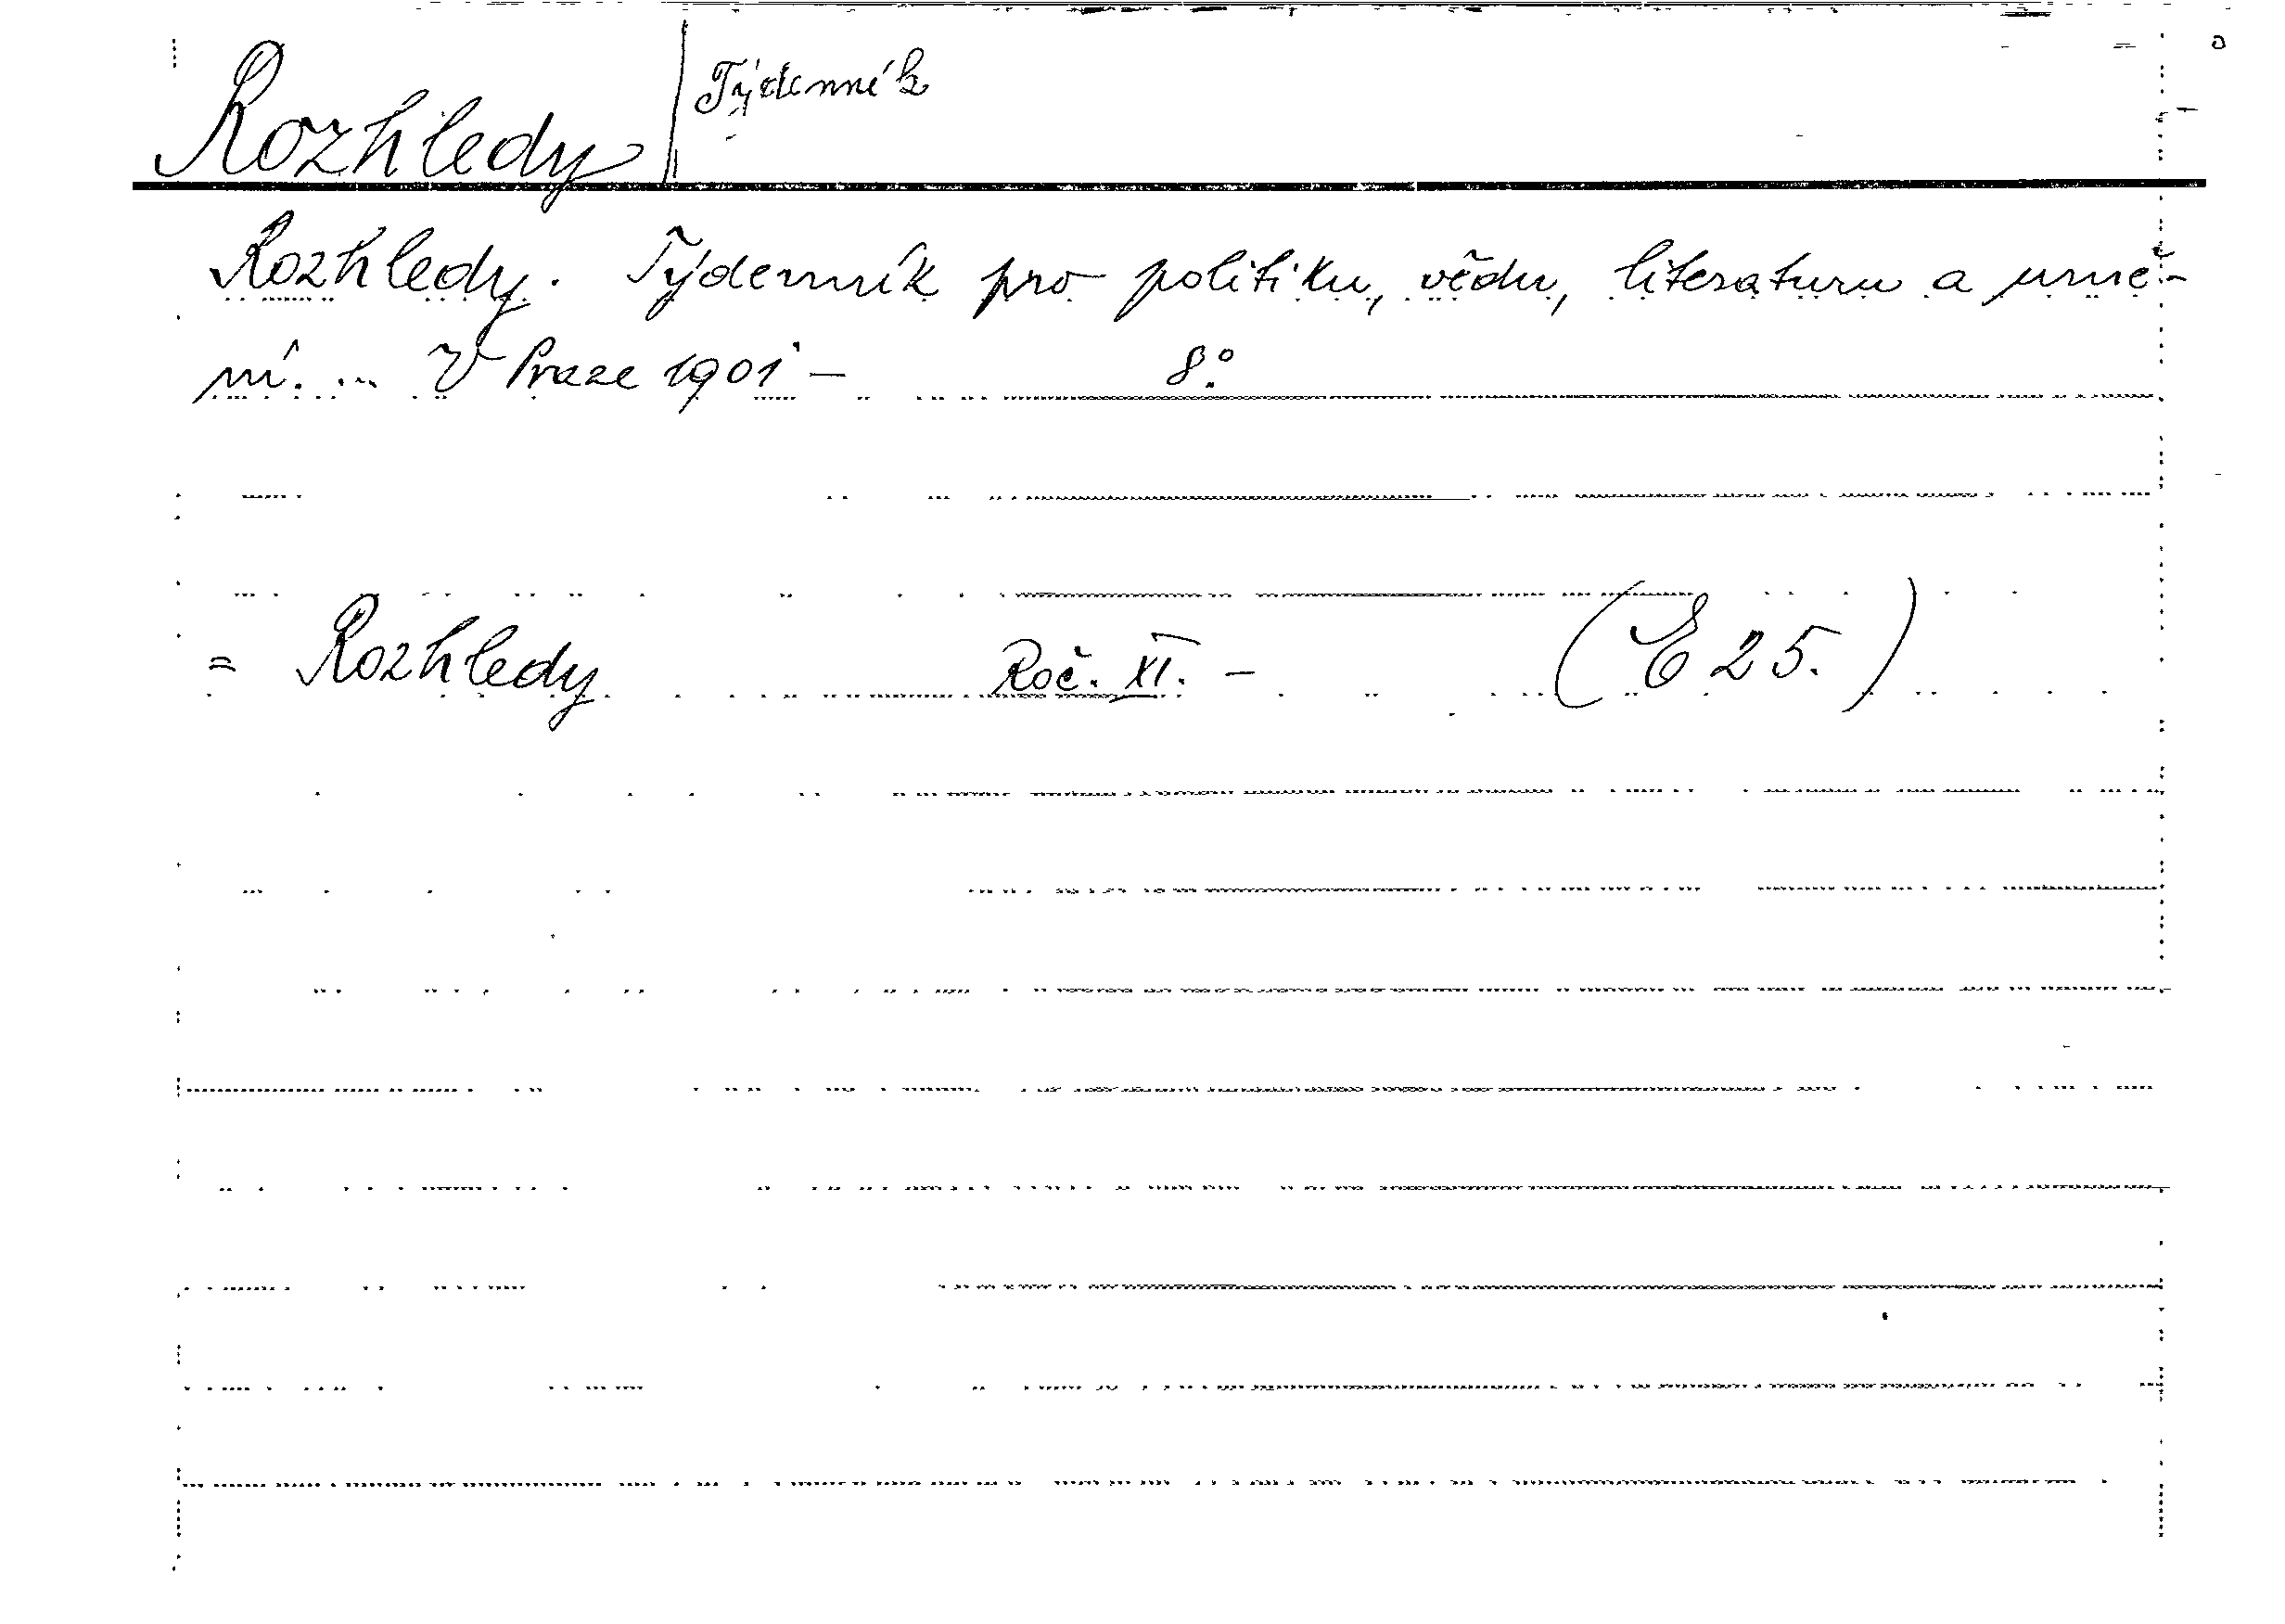 Rozhledy | Týdenník
Rozhledy. Týdenník pro politiku, vědu, literaturu a umě-
ní. ... V Praze 1901 – 8°.
= Rozhledy Roč. XI. – (E 25.)